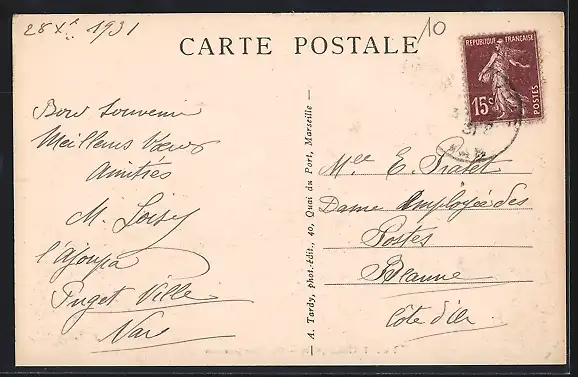 28 Xbre 1931
10
CARTE POSTALE
REPUBLIQUE FRANÇAISE
15c
POSTES
Bon Souvenir
Meilleurs Vœux
Amitiés
M.
l'Ajoupa
Puget Ville
Var
A. Tardy, phot.-édit., 40, Quai du Port, Marseille
Mlle E.
Dame Employée des
Postes
Beaune
Côte d'Or